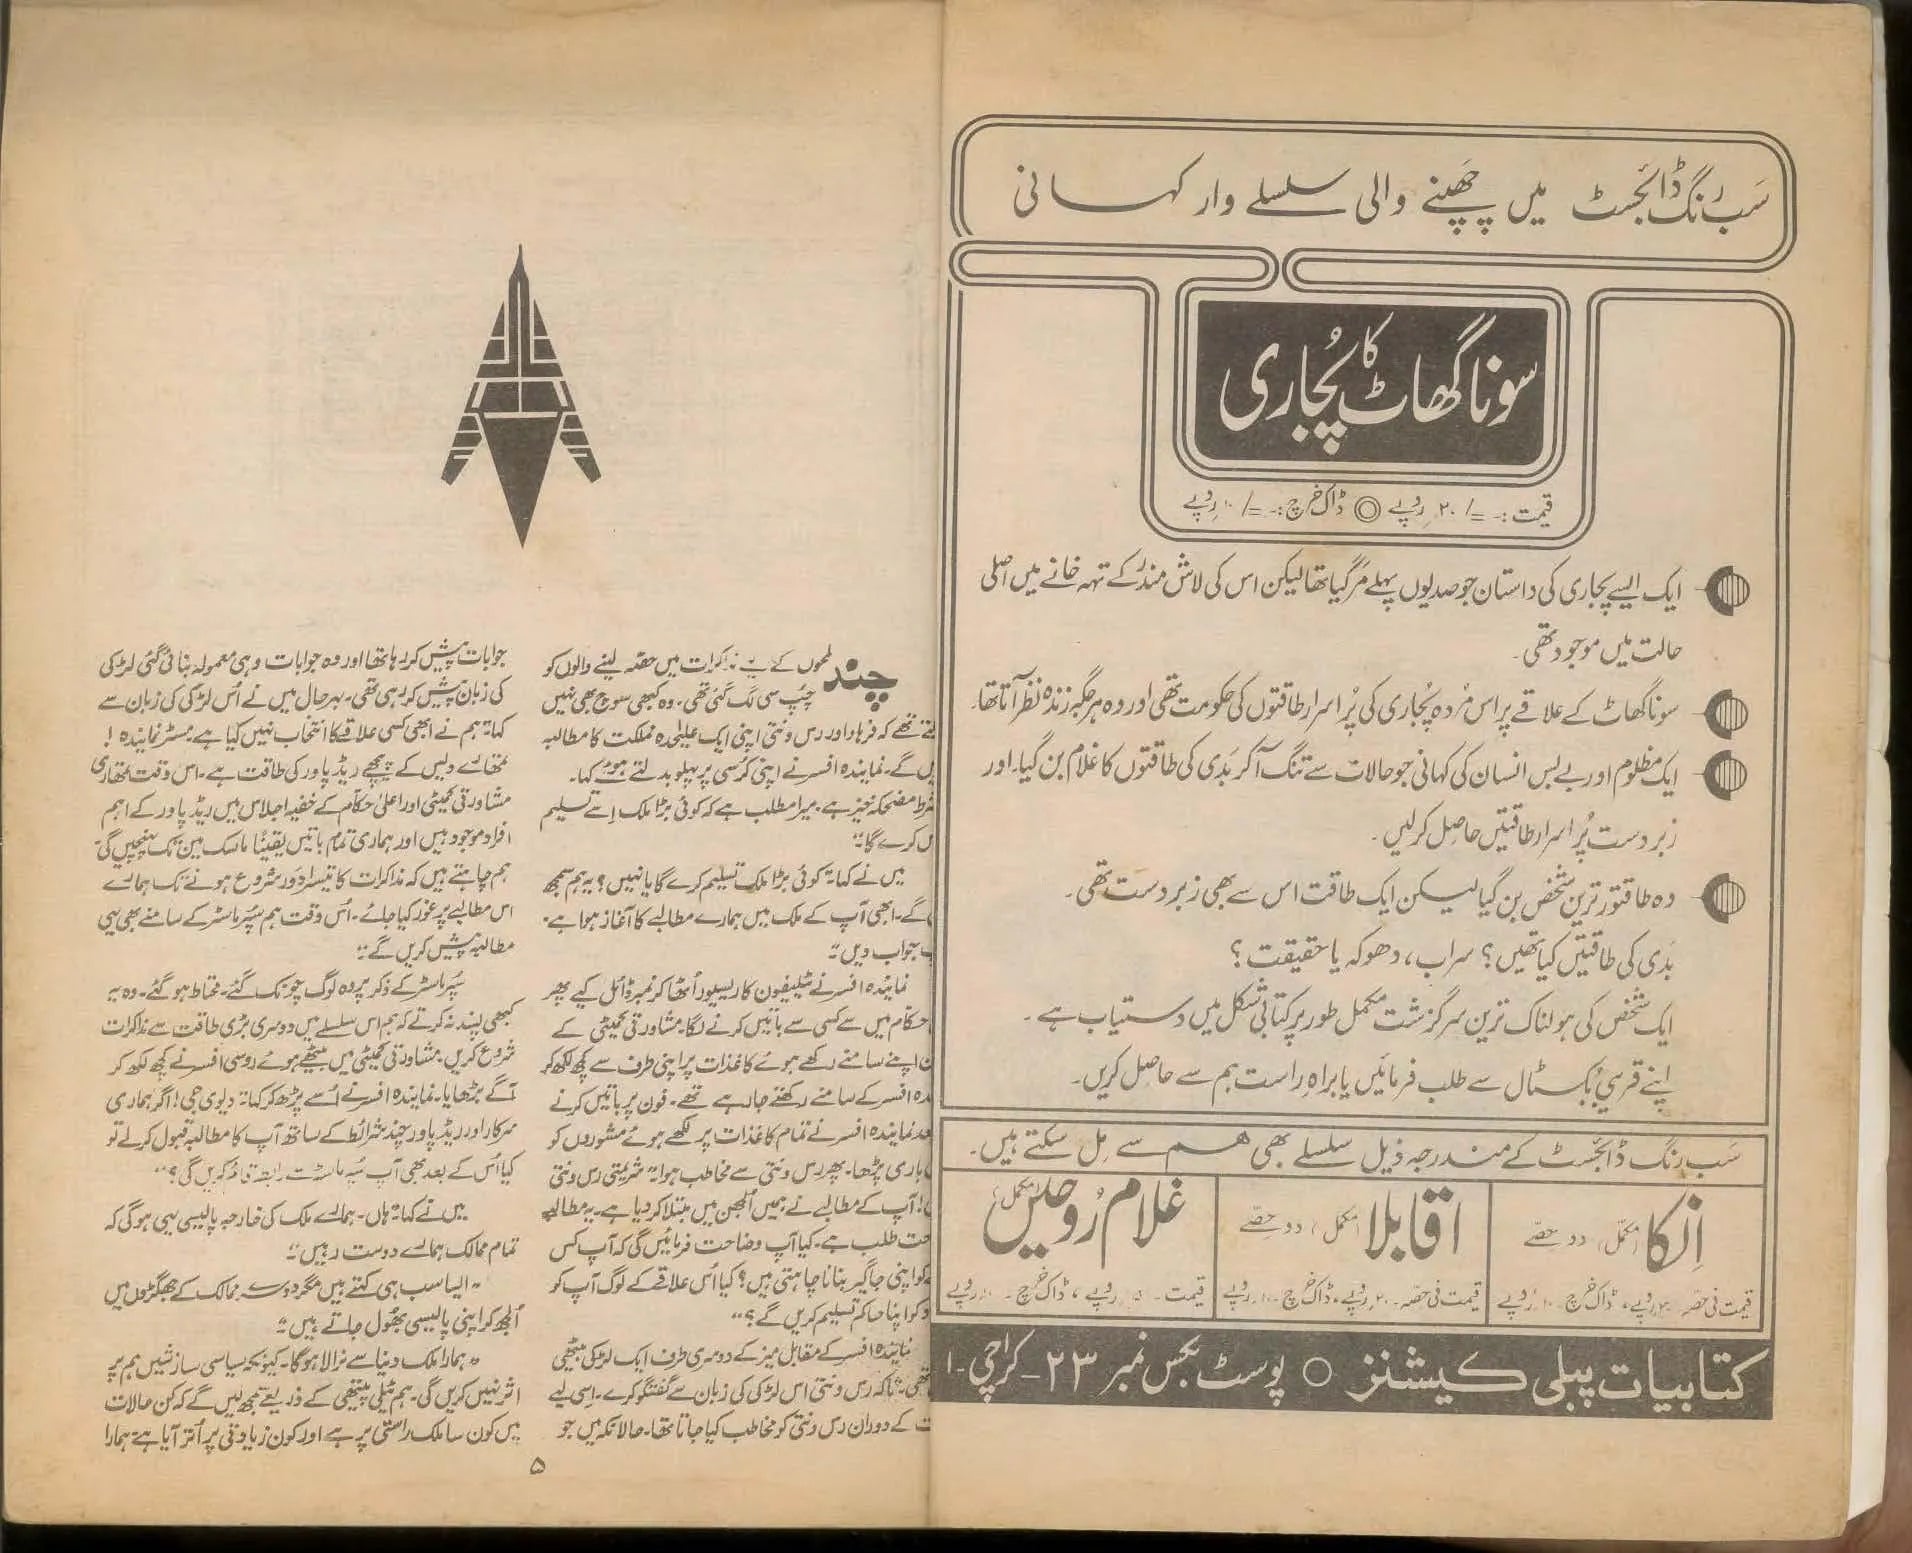 سب رنگ ڈائجسٹ میں چھپنے والی سلسلے وار کہانی
سونا گھاٹ کا پُجاری
قیمت :۔ =/۲۰ روپے ◎ ڈاک خرچ :۔ =/۱۰ روپے
ایک ایسے پجاری کی داستان جو صدیوں پہلے مَر گیا تھا لیکن اس کی لاش مندر کے تہہ خانے میں اصلی
حالت میں موجود تھی۔
سونا گھاٹ کے علاقے پر اس مُردہ پُجاری کی پُر اسرار طاقتوں کی حکومت تھی اور وہ ہر جگہ زندہ نظر آتا تھا۔
ایک مظلوم اور بے بس انسان کی کہانی جو حالات سے تنگ آ کر بَدی کی طاقتوں کا غلام بن گیا۔ اور
زبردست پُر اسرار طاقتیں حاصل کر لیں۔
وہ طاقتور ترین شخص بن گیا لیکن ایک طاقت اس سے بھی زبردست تھی۔
بَدی کی طاقتیں کیا تھیں؟ سراب، دھوکہ یا حقیقت؟
ایک شخص کی ہولناک ترین سرگزشت مکمل طور پر کتابی شکل میں دستیاب ہے۔
اپنے قریبی بُکسٹال سے طلب فرمائیں یا براہِ راست ہم سے حاصل کریں۔
سَب رنگ ڈائجسٹ کے مندرجہ ذیل سلسلے بھی ہم سے مِل سکتے ہیں۔
اِنکا (مکمل) دو حصّے
قیمت فی حصّہ ۔۲۰ روپے، ڈاک خرچ ۔۱۰ روپے
اقابلا (مکمل) دو حصّے
قیمت فی حصّہ ۔۲۰ روپے، ڈاک خرچ ۔۱۰ روپے
غلام رُوحیں (مکمل)
قیمت ۔ روپے، ڈاک خرچ ۔۱۰ روپے
کتابیات پبلی کیشنز ○ پوسٹ بکس نمبر ۲۳ - کراچی - ۱
چند لمحوں کے لیے مذاکرات میں حصّہ لینے والوں کو
چپ سی لگ گئی تھی۔ وہ کبھی سوچ بھی نہیں
تھے کہ فرہاد اور رس ونتی اپنی ایک علیٰحدہ مملکت کا مطالبہ
گے۔ نمایندہ افسر نے اپنی کرسی پر پہلو بدلتے ہوئے کہا۔
مضحکہ خیز ہے۔ میرا مطلب ہے کہ کوئی بڑا ملک اِسے تسلیم
کرے گا؟“
میں نے کہا۔“ کوئی بڑا ملک تسلیم کرے گا یا نہیں؟ یہ ہم سمجھ
گے۔ ابھی آپ کے ملک میں ہمارے مطالبے کا آغاز ہوا ہے۔
جواب دیں۔“
نمایندہ افسر نے ٹیلیفون کا ریسیور اُٹھا کر نمبر ڈائل کیے پھر
حکام میں سے کسی سے باتیں کرنے لگا۔ مشاورتی کمیٹی کے
اپنے سامنے رکھے ہوئے کاغذات پر اپنی طرف سے کچھ لکھ کر
افسر کے سامنے رکھتے جا رہے تھے۔ فون پر باتیں کرنے
نمایندہ افسر نے تمام کاغذات پر لکھے ہوئے مشوروں کو
باری پڑھا۔ پھر رس ونتی سے مخاطب ہوا۔“ شریمتی رس ونتی
! آپ کے مطالبے نے ہمیں اُلجھن میں مبتلا کر دیا ہے۔ یہ مطالبہ
طلب ہے۔ کیا آپ وضاحت فرمائیں گی کہ آپ کس
کو اپنی جاگیر بنانا چاہتی ہیں؟ کیا اُس علاقے کے لوگ آپ کو
کو اپنا حاکم تسلیم کریں گے؟“
نمایندہ افسر کے مقابل میز کے دوسری طرف ایک لڑکی بیٹھی
تھی۔ تاکہ رس ونتی اس لڑکی کی زبان سے گفتگو کرے۔ اِسی لیے
کے دوران رس ونتی کو مخاطب کیا جاتا تھا۔ حالانکہ میں جو
جوابات پیش کر رہا تھا اور وہ جوابات وہی معمولہ بنائی گئی لڑکی
کی زبان پیش کر رہی تھی۔ بہرحال میں نے اُس لڑکی کی زبان سے
کہا۔“ ہم نے ابھی کسی علاقے کا انتخاب نہیں کیا ہے۔ مسٹر نمایندہ!
تمھارے دیس کے پیچھے ریڈ پاور کی طاقت ہے۔ اس وقت تمھاری
مشاورتی کمیٹی اور اعلیٰ حکام کے خفیہ اجلاس میں ریڈ پاور کے اہم
افراد موجود ہیں اور ہماری تمام باتیں یقیناً ماسک مین تک پہنچیں گی۔
ہم چاہتے ہیں کہ مذاکرات کا تیسرا دور شروع ہونے تک ہمارے
اس مطالبے پر غور کیا جائے۔ اُس وقت ہم سپر ماسٹر کے سامنے بھی یہی
مطالبہ پیش کریں گے۔“
سپر ماسٹر کے ذکر پر وہ لوگ چونک گئے۔ محتاط ہو گئے۔ وہ یہ
کبھی پسند نہ کرتے کہ ہم اس سلسلے میں دوسری بڑی طاقت سے مذاکرات
شروع کریں۔ مشاورتی کمیٹی میں بیٹھے ہوئے روسی افسر نے کچھ لکھ کر
آگے بڑھایا۔ نمایندہ افسر نے اُسے پڑھ کر کہا۔“ دیوی جی! اگر ہماری
سرکار اور ریڈ پاور چند شرائط کے ساتھ آپ کا مطالبہ قبول کر لے تو
کیا اُس کے بعد بھی آپ سپر ماسٹر سے رابطہ قائم کریں گی؟“
میں نے کہا۔“ ہاں۔ ہمارے ملک کی خارجہ پالیسی یہی ہو گی کہ
تمام ممالک ہمارے دوست رہیں۔“
“ایسا سب ہی کہتے ہیں مگر دوسرے ممالک کے جھگڑوں میں
اُلجھ کر اپنی پالیسی بھول جاتے ہیں۔“
“ہمارا ملک دنیا سے نرالا ہو گا۔ کیونکہ سیاسی سازشیں ہم پر
اثر نہیں کریں گی۔ ہم ٹیلی پیتھی کے ذریعے سمجھ لیں گے کہ کن حالات
میں کون سا ملک راستی پر ہے اور کون زیادتی پر اُتر آیا ہے۔ ہمارا
۵